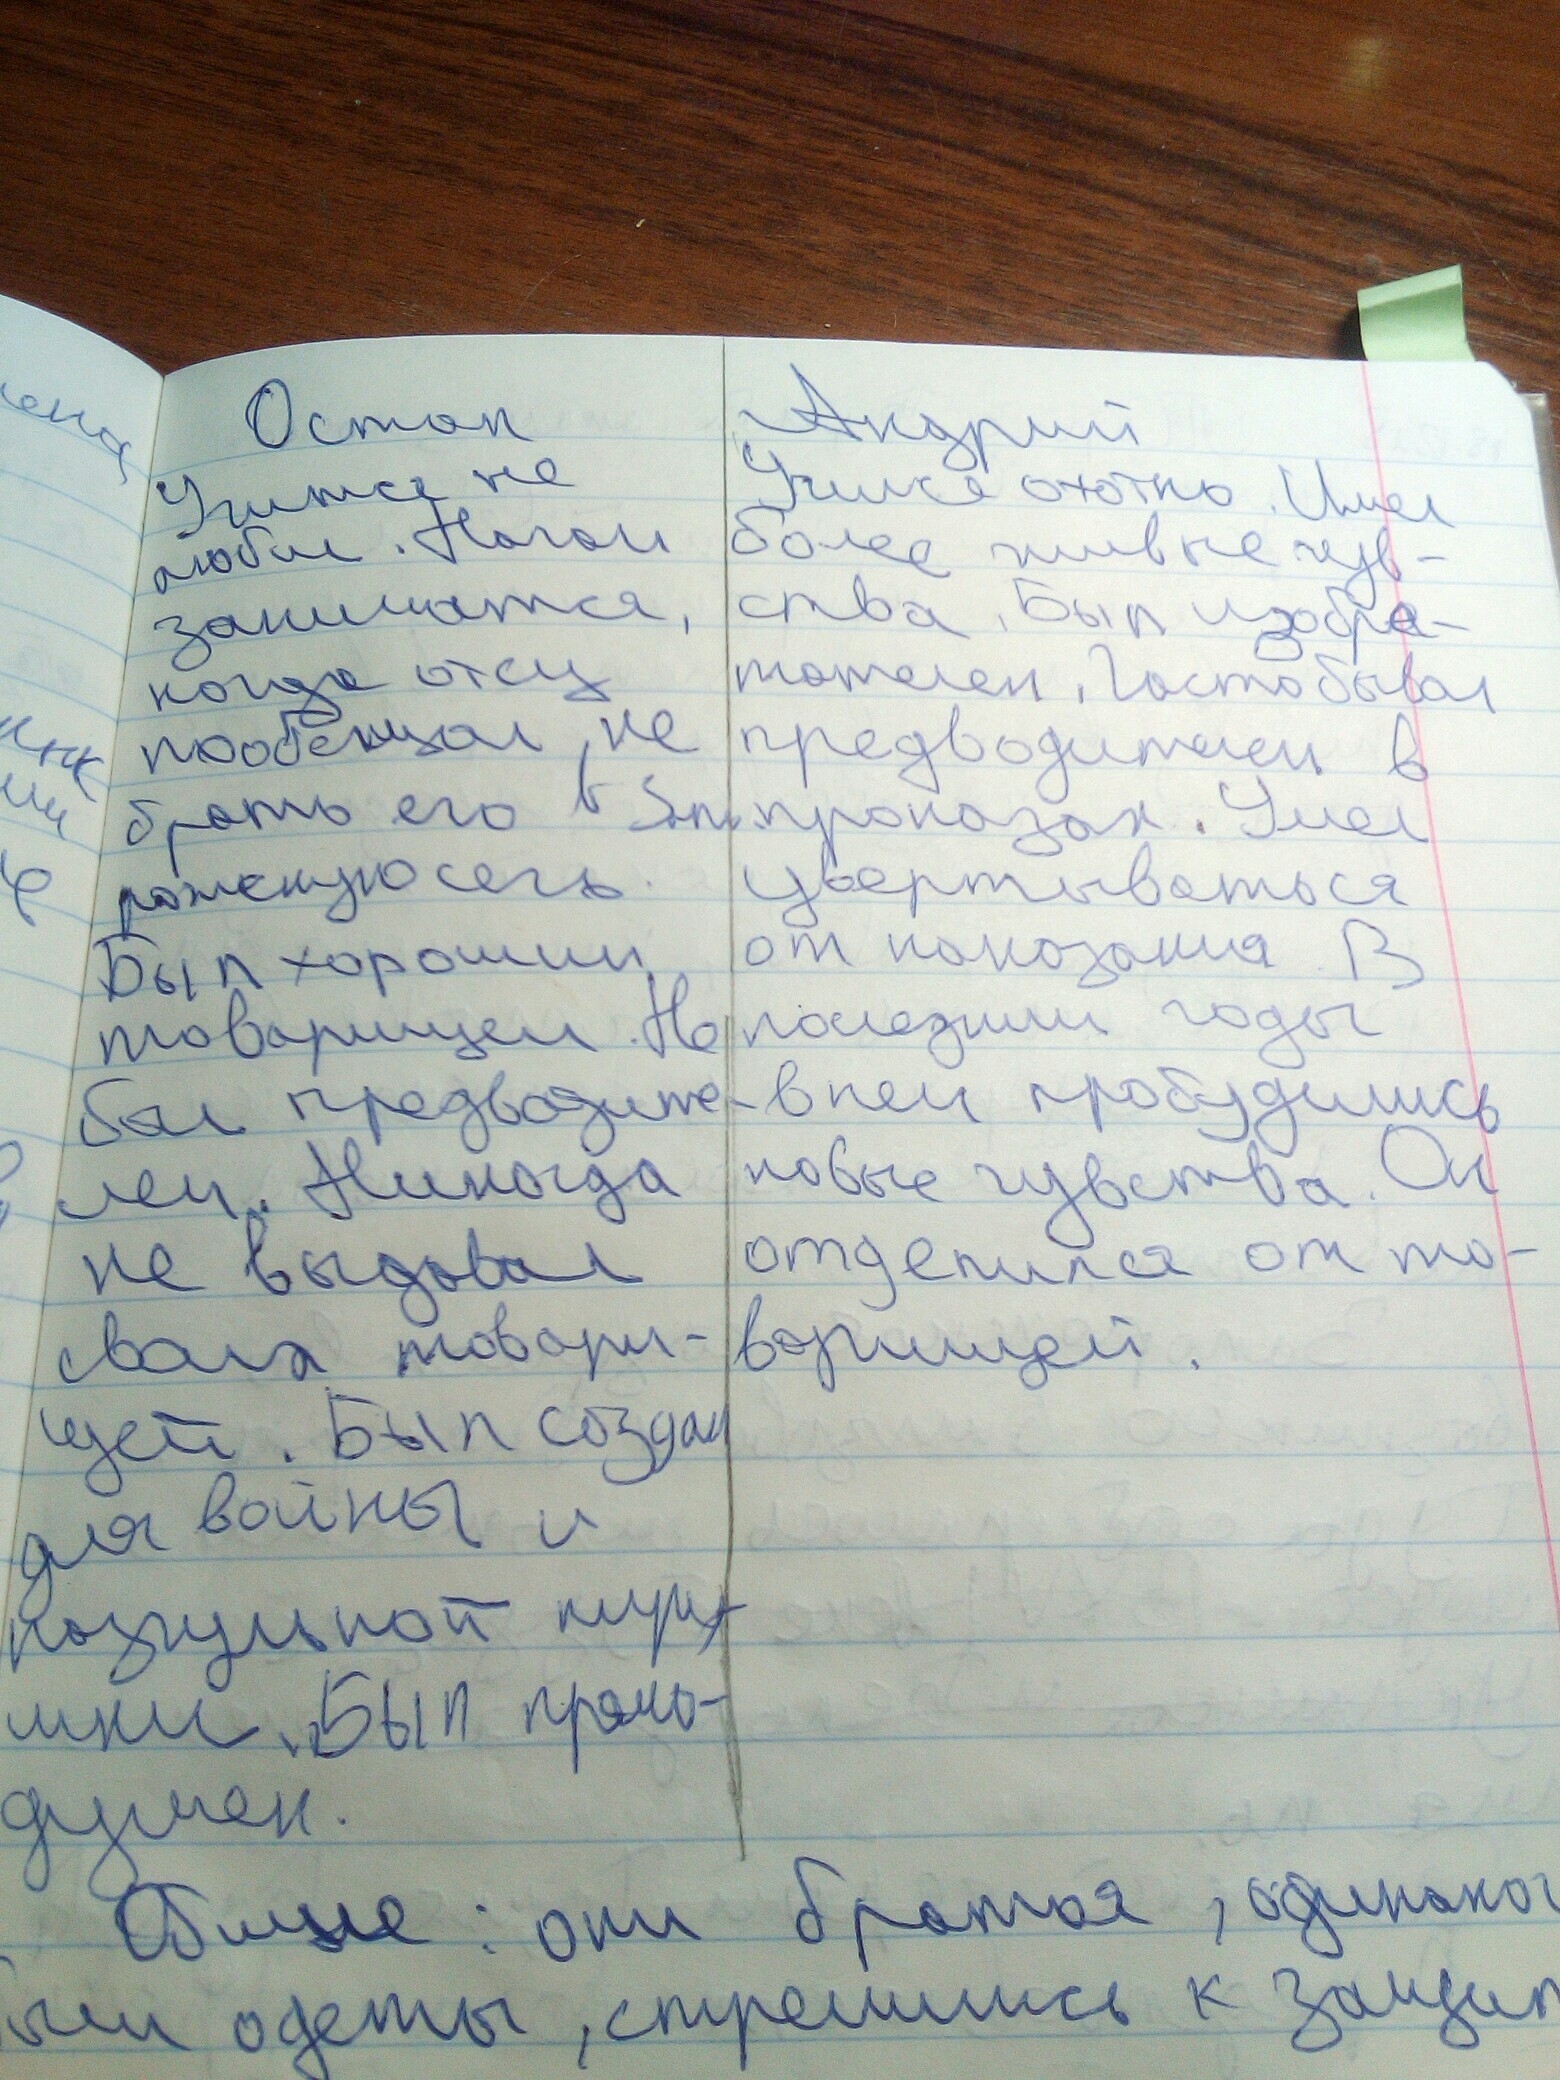 Остап
Учится не
любил. Начал
заниматся,
когда отец
пообещал, не
брать его в Зап.
рожскую сечь.
Был хорошим
товарищем. Не
был предводите-
лем. Никогда
не выдовал
своих товари-
щей. Был создан
для войны и
разгульной пиру-
шки. Был прямо-
душен.
Андрий
Учился охотно. Имел
более живые чув-
ства. Был изобра-
тателен. Часто бывал
предводителем в
проказах. Умел
увертываться
от наказания. В
последнии годы
в нем пробудились
новые чувства. Он
отделился от то-
варищей.
Общие: они братья, одинаког
были одеты, стремились к защит